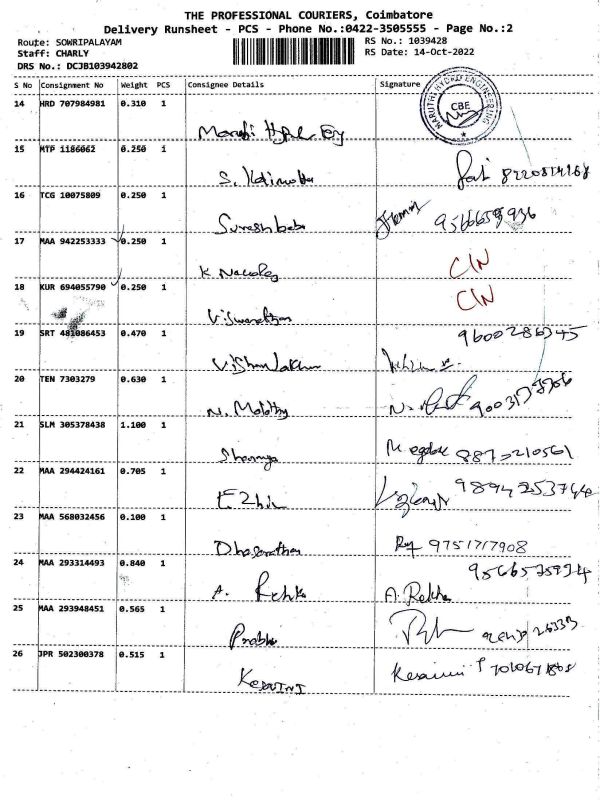 THE PROFESSIONAL COURIERS, Coimbatore
Delivery Runsheet - PCS - Phone No.:0422-3505555 - Page No.:2
Route: SOWRIPALAYAM
Staff: CHARLY
DRS No.: DCJB103942802
RS No.: 1039428
RS Date: 14-Oct-2022
S No Consignment No Weight PCS Consignee Details Signature
MARUTHI HYDRO ENGINEERING
CBE
14 HRD 707984981 0.310 1
15 MTP 1186062 0.250 1
S.
16 TCG 10075809 0.250 1
Suresh babu 9566659936
17 MAA 942253333 0.250 1
K CIN
18 KUR 694055790 0.250 1
CIN
Viswanathan
19 SRT 481086453 0.470 1
9600286345
20 TEN 7303279 0.630 1
N. N.
21 SLM 305378438 1.100 1
Sharmya M
22 MAA 294424161 0.705 1
Ezhil 9894253744
23 MAA 568032456 0.100 1
Dhasarathan 9751717908
24 MAA 293314493 0.840 1
A. Rekha A. Rekha
25 MAA 293948451 0.565 1
Prabhu
26 JPR 502300378 0.515 1
KESAVINI